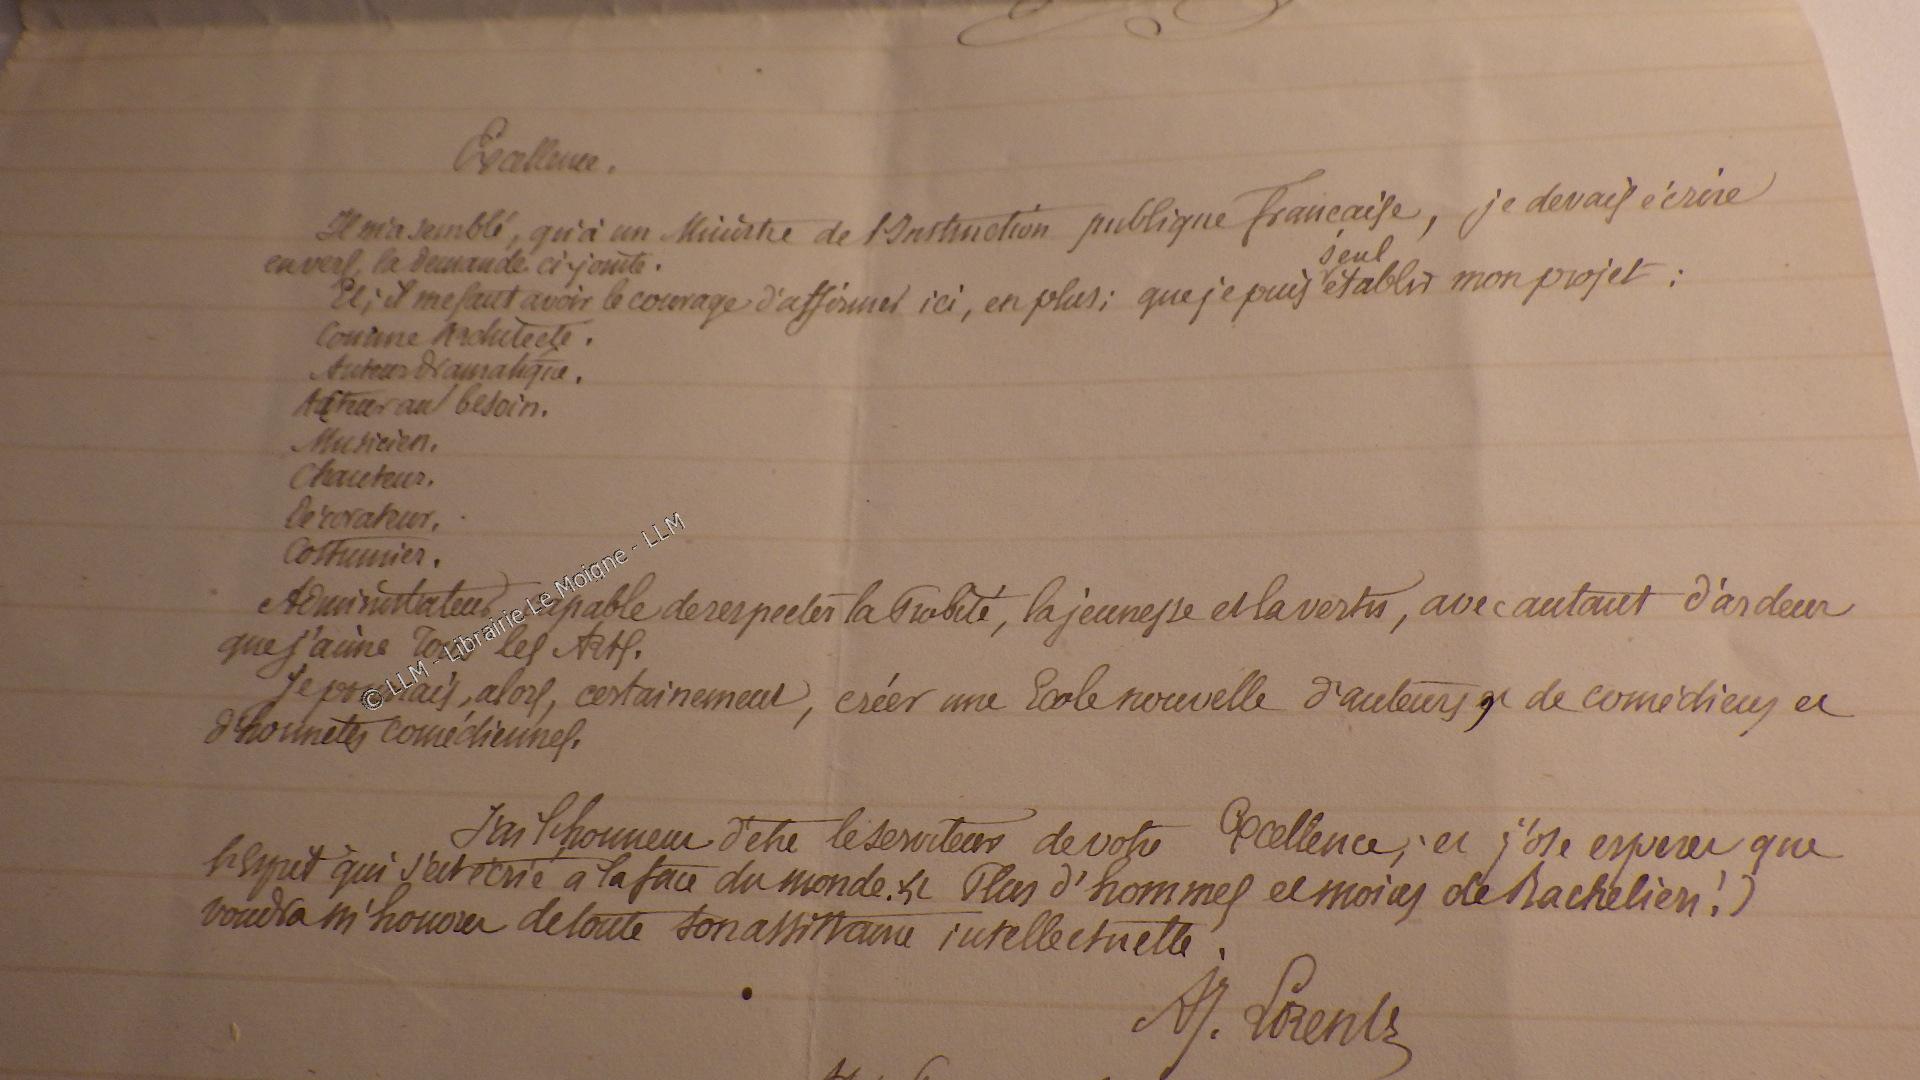 Excellence.
Il m'a semblé, qu'à un Ministre de l'Instruction publique française, je devais écrire
en vers, la demande ci-jointe.
Et, il me faut avoir le courage d'affirmer ici, en plus; que je puis seul établir mon projet :
Comme Architecte.
Auteur dramatique.
Acteur au besoin.
Musicien.
Chanteur.
Décorateur.
Costumier.
Administrateur capable de respecter la Probité, la jeunesse et la vertu, avec autant d'ardeur
que j'aime tous les Arts.
Je pourrais, alors, certainement, créer une Ecole nouvelle d'auteurs, de comédiens et
d'honnêtes comédiennes.
J'ai l'honneur d'être le serviteur de votre Excellence, et j'ose esperer que
l'Esprit qui s'est écrié à la face du monde. (Plus d'hommes et moins de Bacheliers!)
voudra m'honorer de toute son assistance intellectuelle.
AJ. Lorentz
© LLM - Librairie Le Moigne - LLM